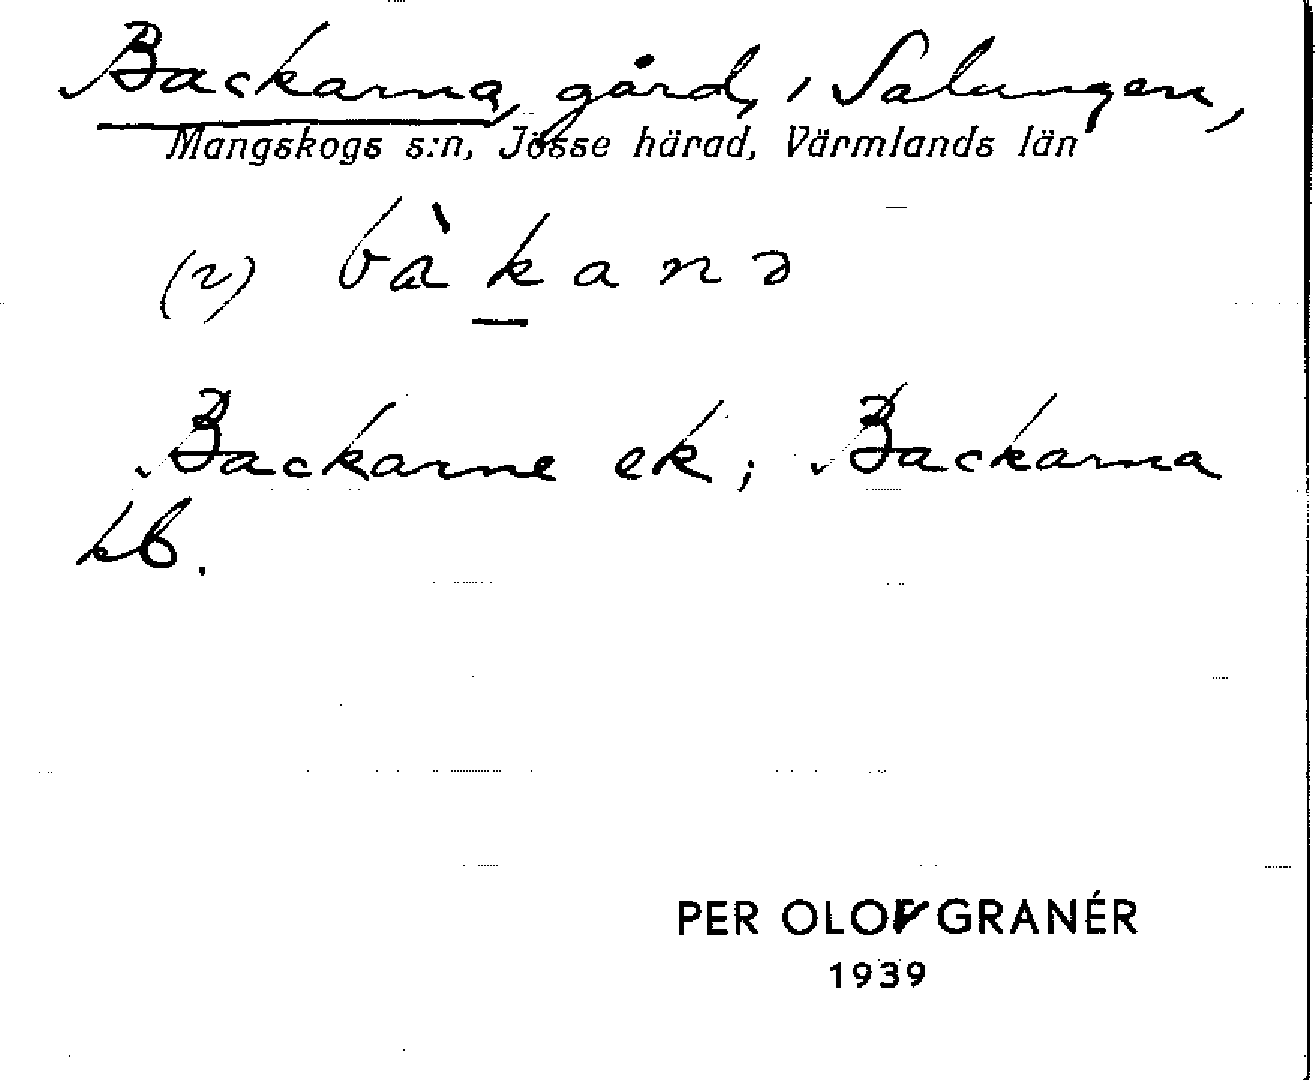 Backarna, gård, i Salungen,
Mangskogs s:n, Jösse härad, Värmlands län
(2) bàkanə
Backarne ek; Backarna
kb.
PER OLOF GRANÉR
1939